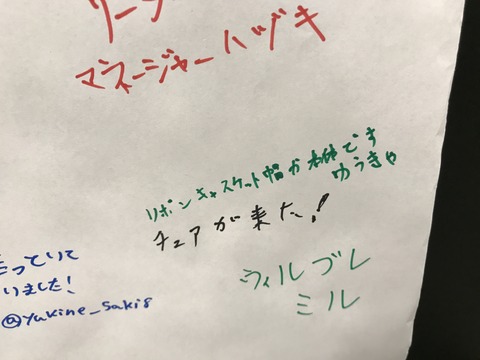 リーダ
マネージャーハヅキ
リボンキャスケット帽が本体です
ゆうきや
チュアが来た!
ウィルブレ
ミル
いりました!
@yukine_saki8